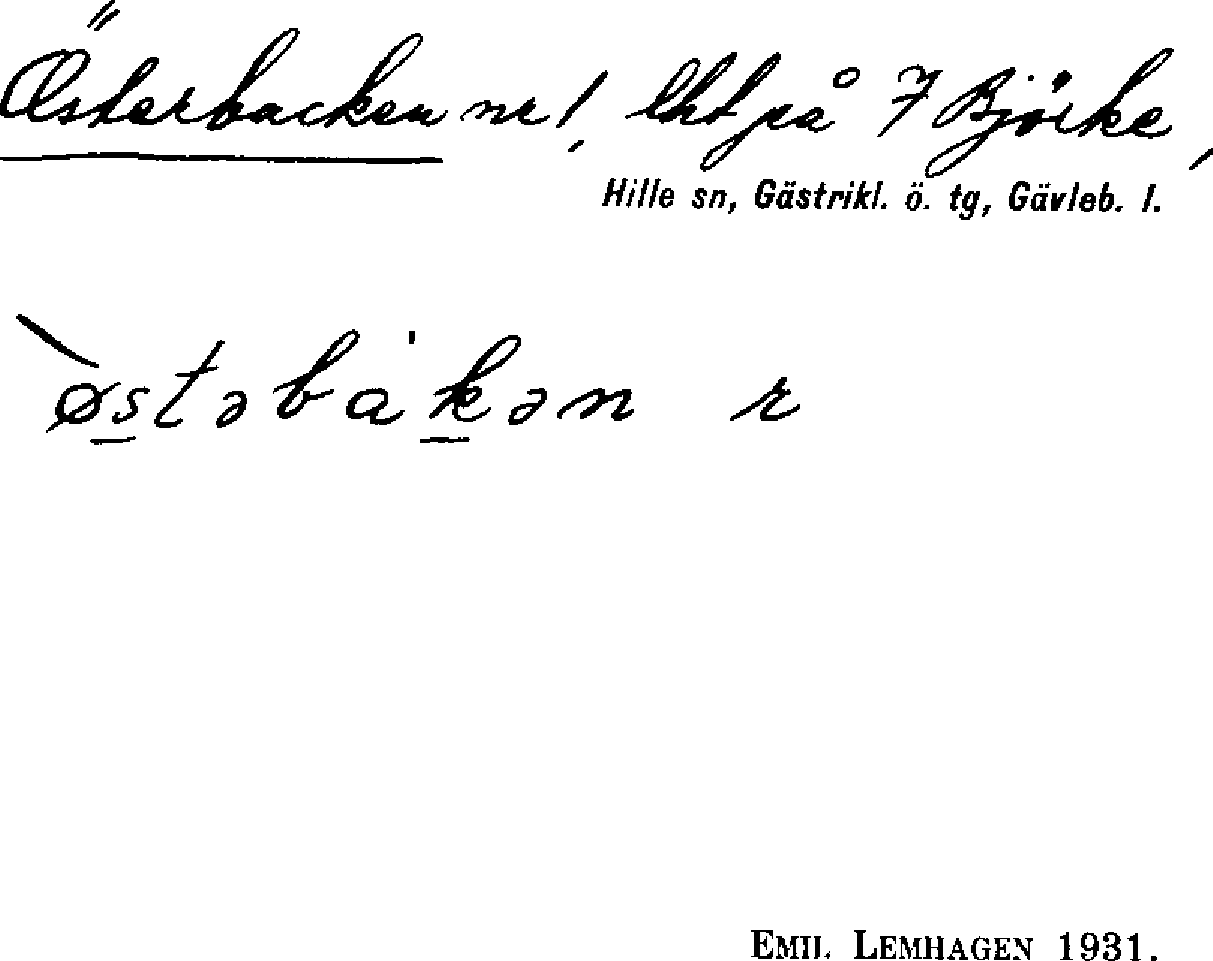 Österbacken nr 1, lht på 7 Björke,
Hille sn, Gästrikl. ö. tg, Gävleb. l.
`østəba'kən r
EMIL LEMHAGEN 1931.